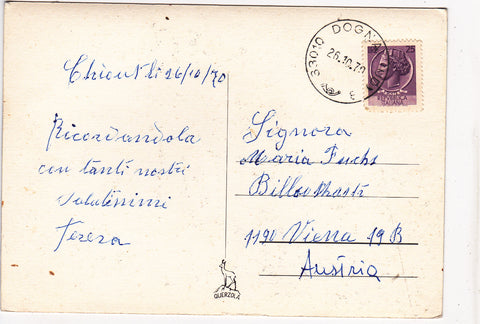 Chiout li 26/10/70
Ricordandola
con tanti nostri
salutissimi
Tereza
33010 DOGNA
26.10.70
25
Signora
Maria Fuchs
1190 Viena 19 B
Austria
QUERZOLA